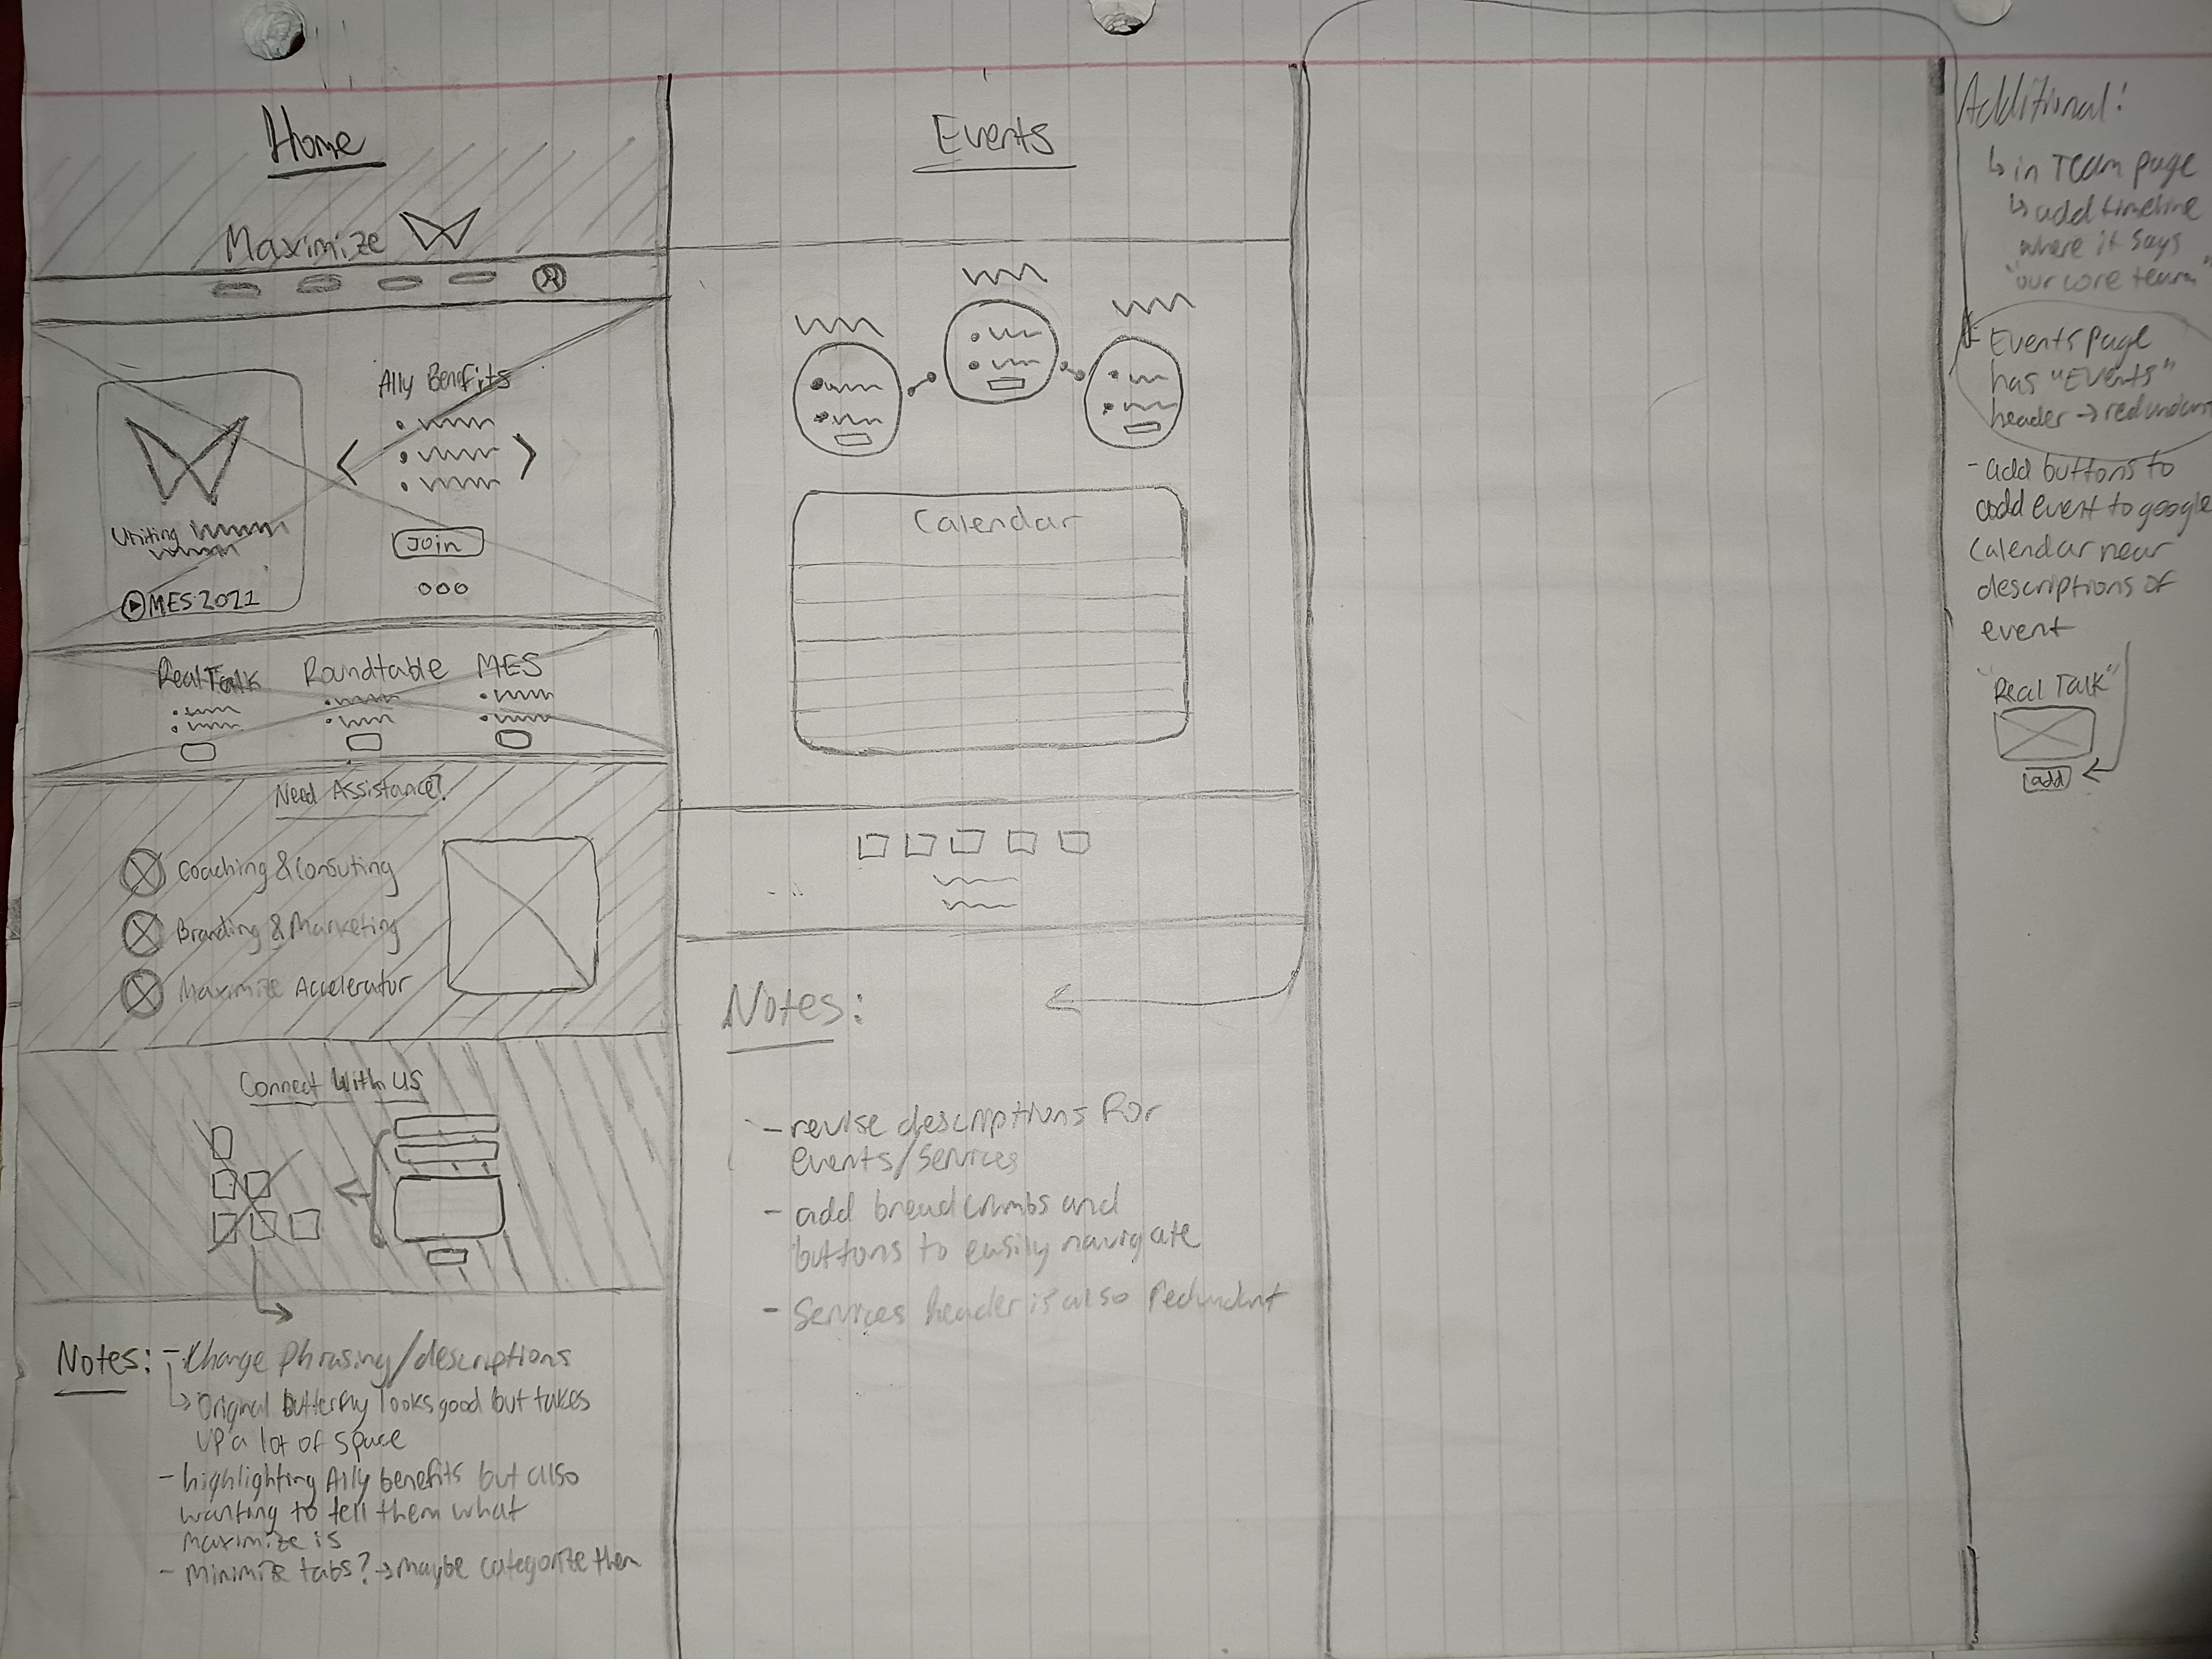 Home
Maximize
Ally Benefits
Uniting
Join
MES 2021
Real Talk
Roundtable
MES
Need Assistance?
Coaching & Consuting
Branding & Marketing
Maximize Accelerator
Connect With us
Notes: - Change phrasing/descriptions
↳ Original Butterfly looks good but takes
up a lot of space
- highlighting Ally benefits but also
wanting to tell them what
maximize is
- Minimize tabs? → maybe categorize them
Events
Calendar
Notes:
- revise descriptions for
events/services
- add breadcrumbs and
buttons to easily navigate
- Services header is also redundant
Additional:
↳ in Team page
↳ add timeline
where it says
"our core team"
Events page
has "Events"
header → redundant
- add buttons to
add event to google
Calendar near
descriptions of
event
"Real Talk"
add